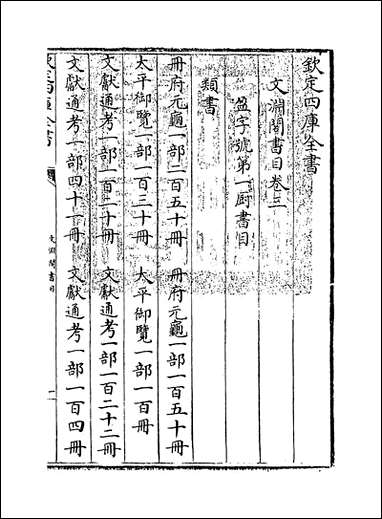 欽定四庫全書
文淵閣書目卷三
盈字號第一廚書目
類書
冊府元龜一部二百五十冊 冊府元龜一部一百五十冊
太平御覽一部一百三十冊 太平御覽一部一百冊
文獻通考一部一百二十冊 文獻通考一部一百二十二冊
文獻通考一部四十一冊 文獻通考一部一百四冊
文淵閣書目